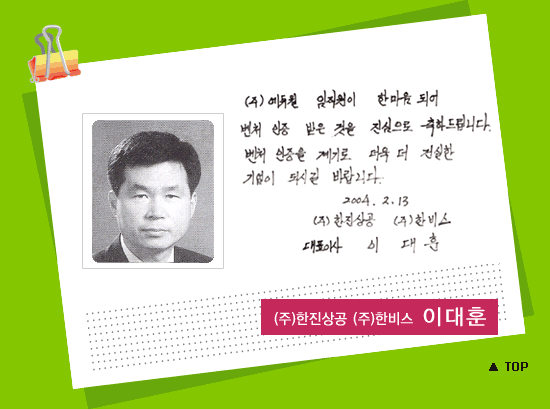 (주) 에듀윈 임직원이 한마음 되어
벤처 인증 받은 것을 진심으로 축하드립니다.
벤처 인증을 계기로 더욱 더 진실한
기업이 되시길 바랍니다.
2004. 2. 13
(주)한진상공 (주)한비스
대표이사 이 대 훈
(주)한진상공 (주)한비스 이대훈
▲ TOP